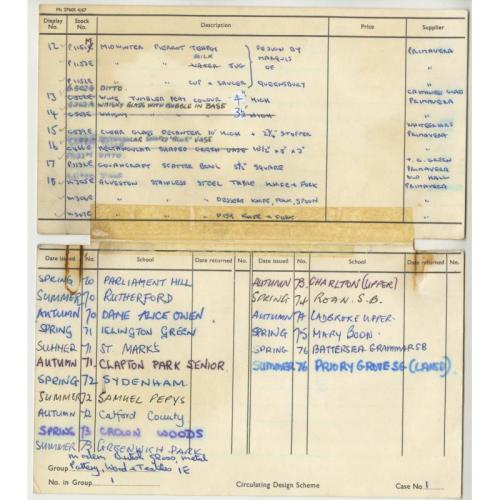 Ph 27605 4/67
Display No. Stock No. Description Price Supplier
12 MIDWINTER PIERROT TEAPOT DESIGN BY PRIMAVERA
P1153E " " MILK JUG MARQUIS OF "
P1152E " " CUP & SAUCER QUEENSBURY "
DITTO
13 WINE TUMBLER PEAT COLOUR 4" HIGH CAITHNESS GLASS
WHISKY GLASS WITH BUBBLE IN BASE PRIMAVERA
14 WHISKY 3½ HIGH "
15 CLEAR GLASS DECANTER 10" HIGH + 2¾" STOPPER WHITEFRIARS
PRIMAVERA
16 RECTANGULAR SHAPED GREEN VASE "
DITTO
17 SCATTER BOWL 5½" SQUARE T. G. GREEN
PRIMAVERA
OLD HALL
18 ALVESTON STAINLESS STEEL TABLE KNIFE + FORK PRIMAVERA
" " " DESSERT KNIFE, FORK, SPOON "
" " " FISH KNIFE + FORK "
Date issued No. School Date returned No. Date issued No. School Date returned No.
SPRING 70 PARLIAMENT HILL
SUMMER 70 RUTHERFORD
AUTUMN 70 DAME ALICE OWEN
SPRING 71 ISLINGTON GREEN
SUMMER 71 ST MARKS
AUTUMN 71. CLAPTON PARK SENIOR.
SPRING 72 SYDENHAM
SUMMER 72 SAMUEL PEPYS
AUTUMN 72 Catford County
SPRING 73 CROWN WOODS
SUMMER 73 GREENWICH PARK
AUTUMN 73. CHARLTON (UPPER)
SPRING 74 ROAN. S.B.
AUTUMN 74 LADBROKE UPPER.
SPRING 75 MARY BOON.
SPRING 76 BATTERSEA GRAMMAR SB
SUMMER 76 PRIORY GROVE SG
modern British Glass, metal
Group Pottery, Wood & Textiles 1E
No. in Group 1 Circulating Design Scheme Case No. 1